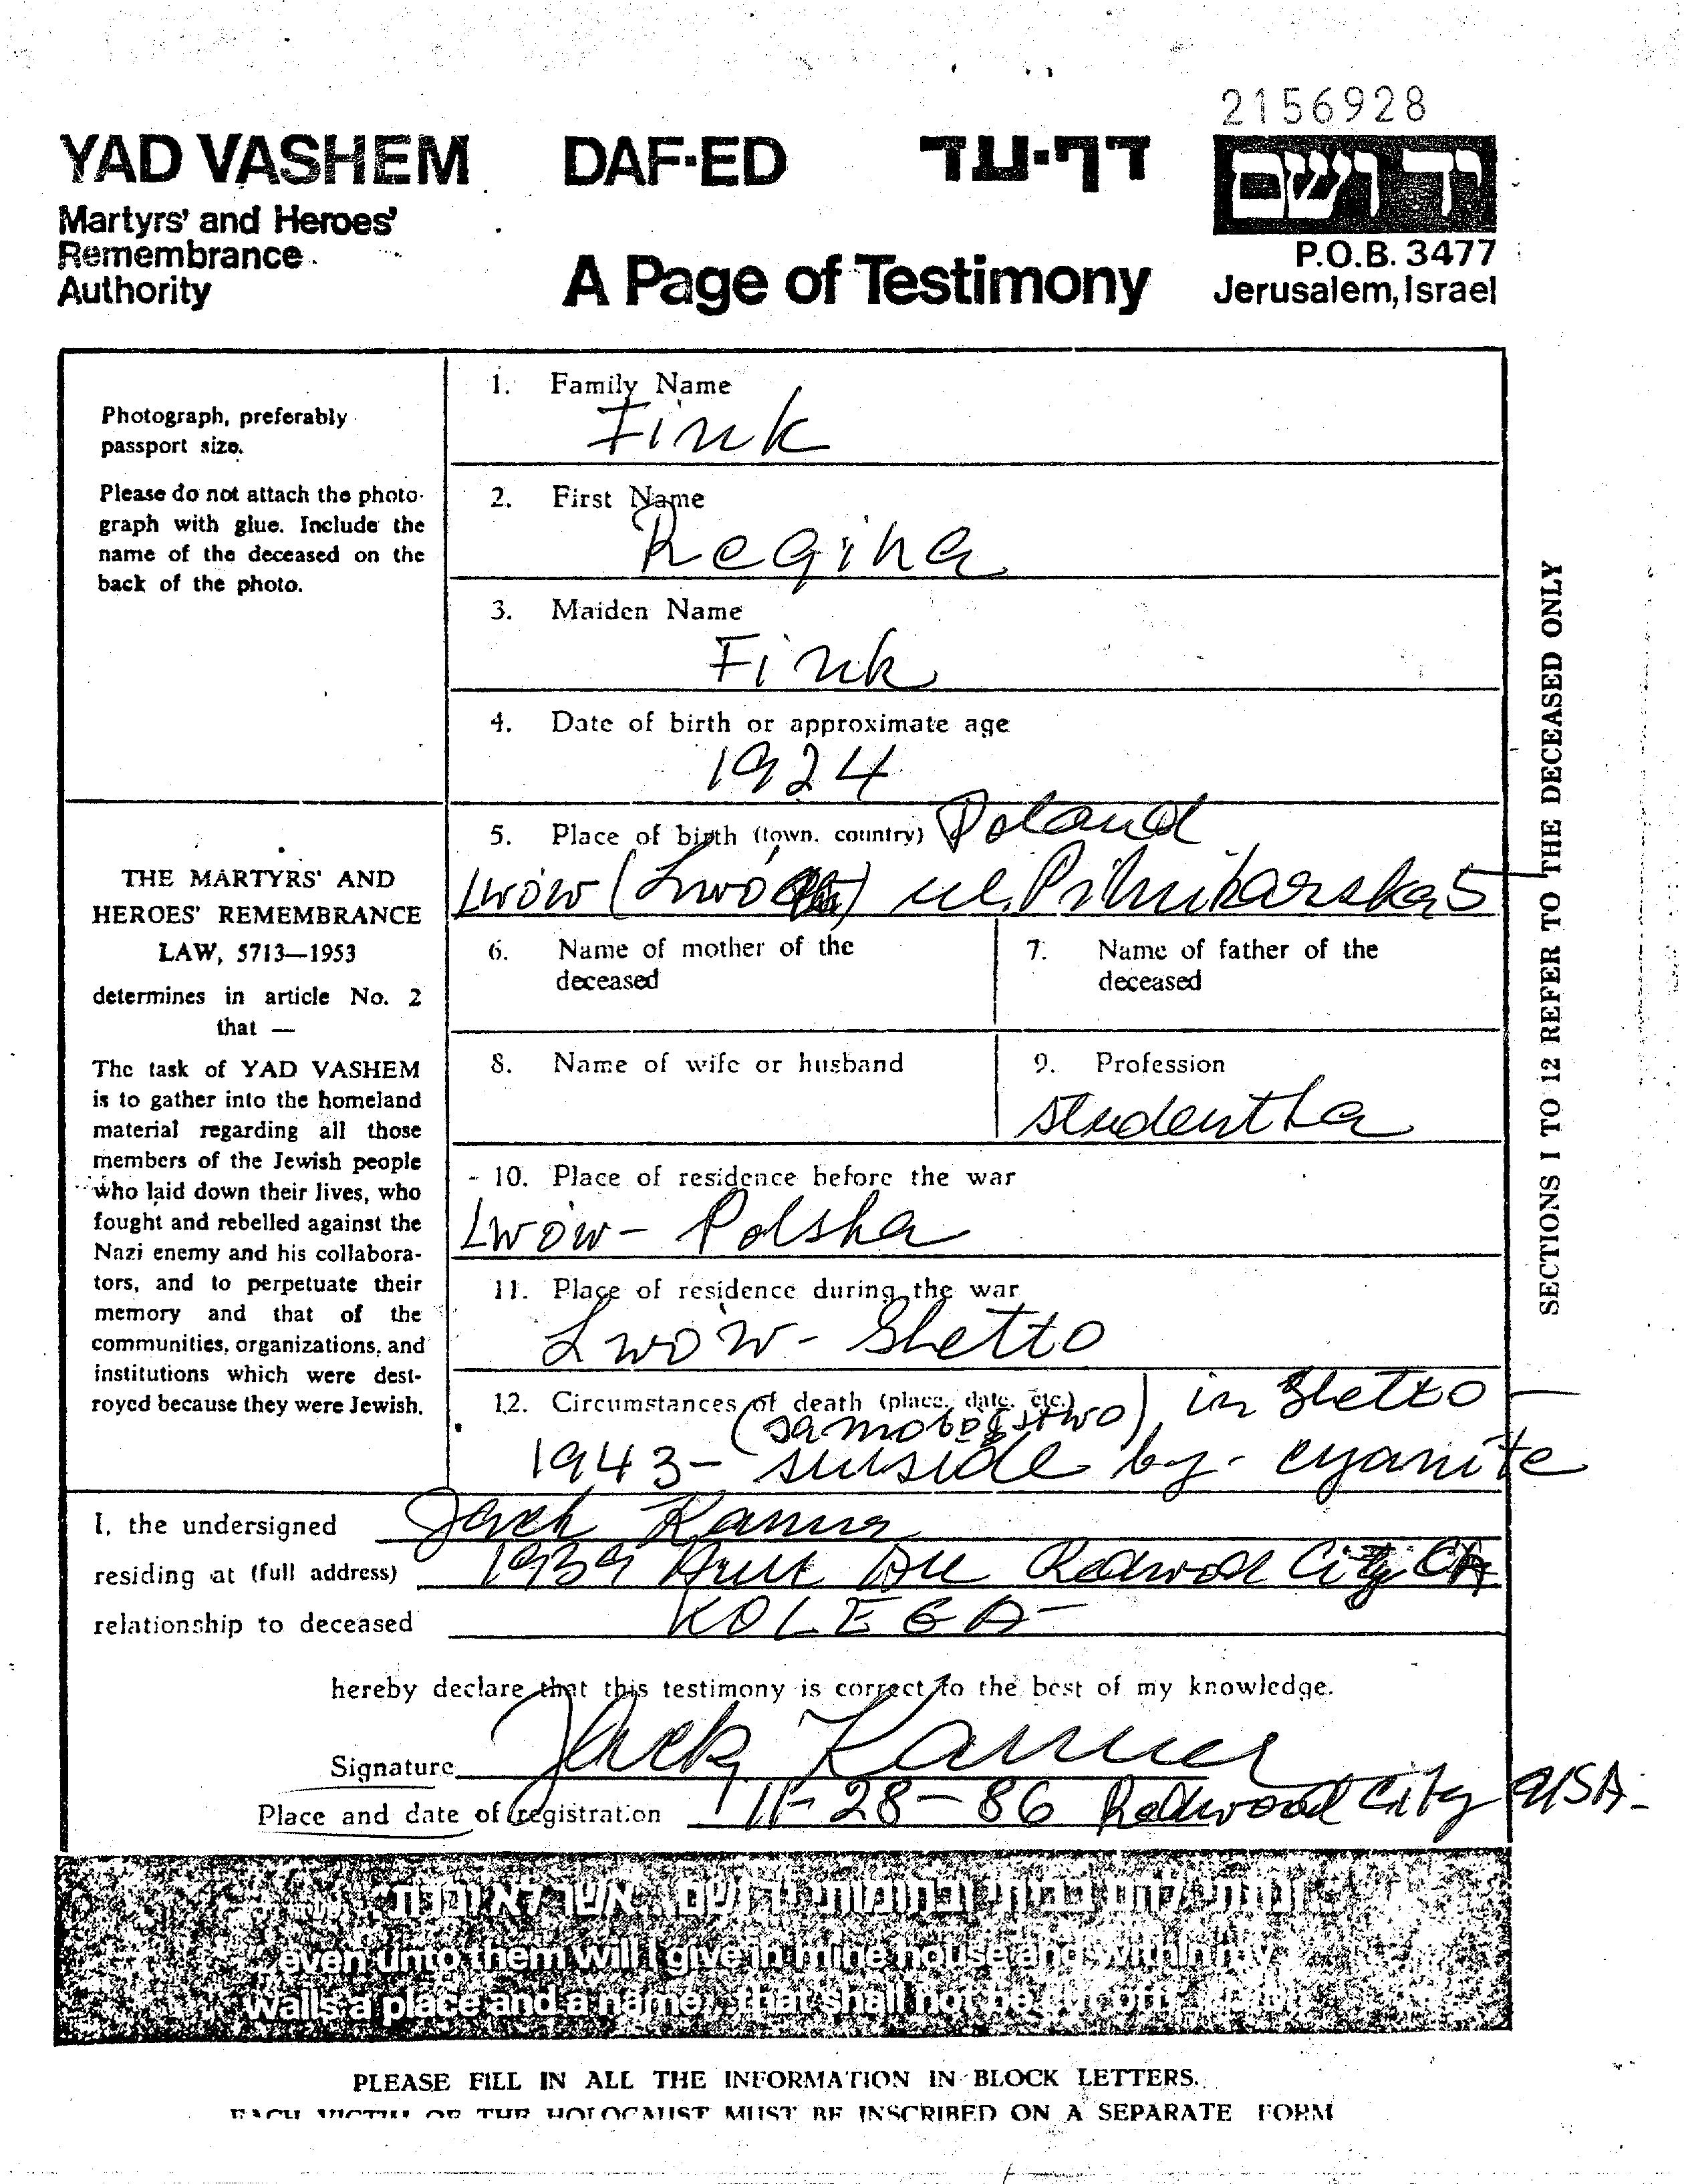 2156928
YAD VASHEM DAF-ED דף-עד יד ושם
Martyrs' and Heroes'
Remembrance
Authority
A Page of Testimony
P.O.B. 3477
Jerusalem, Israel
Photograph, preferably
passport size.
Please do not attach the photo-
graph with glue. Include the
name of the deceased on the
back of the photo.
1. Family Name
Fink
2. First Name
Regina
3. Maiden Name
Fink
4. Date of birth or approximate age
1924
5. Place of birth (town, country) Poland
Lwów ul. 5
6. Name of mother of the
deceased
7. Name of father of the
deceased
8. Name of wife or husband
9. Profession
studentka
10. Place of residence before the war
Lwów - Polska
11. Place of residence during the war
Lwów - Ghetto
12. Circumstances of death (place, date, etc.) in Ghetto -
(samobójstwo)
1943 - suiside by - cyanite
THE MARTYRS' AND
HEROES' REMEMBRANCE
LAW, 5713—1953
determines in article No. 2
that —
The task of YAD VASHEM
is to gather into the homeland
material regarding all those
members of the Jewish people
who laid down their lives, who
fought and rebelled against the
Nazi enemy and his collabora-
tors, and to perpetuate their
memory and that of the
communities, organizations, and
institutions which were dest-
royed because they were Jewish.
SECTIONS 1 TO 12 REFER TO THE DECEASED ONLY
I, the undersigned Jack Kanner
residing at (full address) 1939 Ave Redwood City CA
relationship to deceased KOLEGA -
hereby declare that this testimony is correct to the best of my knowledge.
Signature Jack Kanner
Place and date of registration 11-28-86 Redwood City USA-
ונתתי להם בביתי ובחומותי יד ושם... אשר לא יכרת
...even unto them will I give in mine house and within my
walls a place and a name... that shall not be cut off.
PLEASE FILL IN ALL THE INFORMATION IN BLOCK LETTERS.
EACH VICTIM OF THE HOLOCAUST MUST BE INSCRIBED ON A SEPARATE FORM